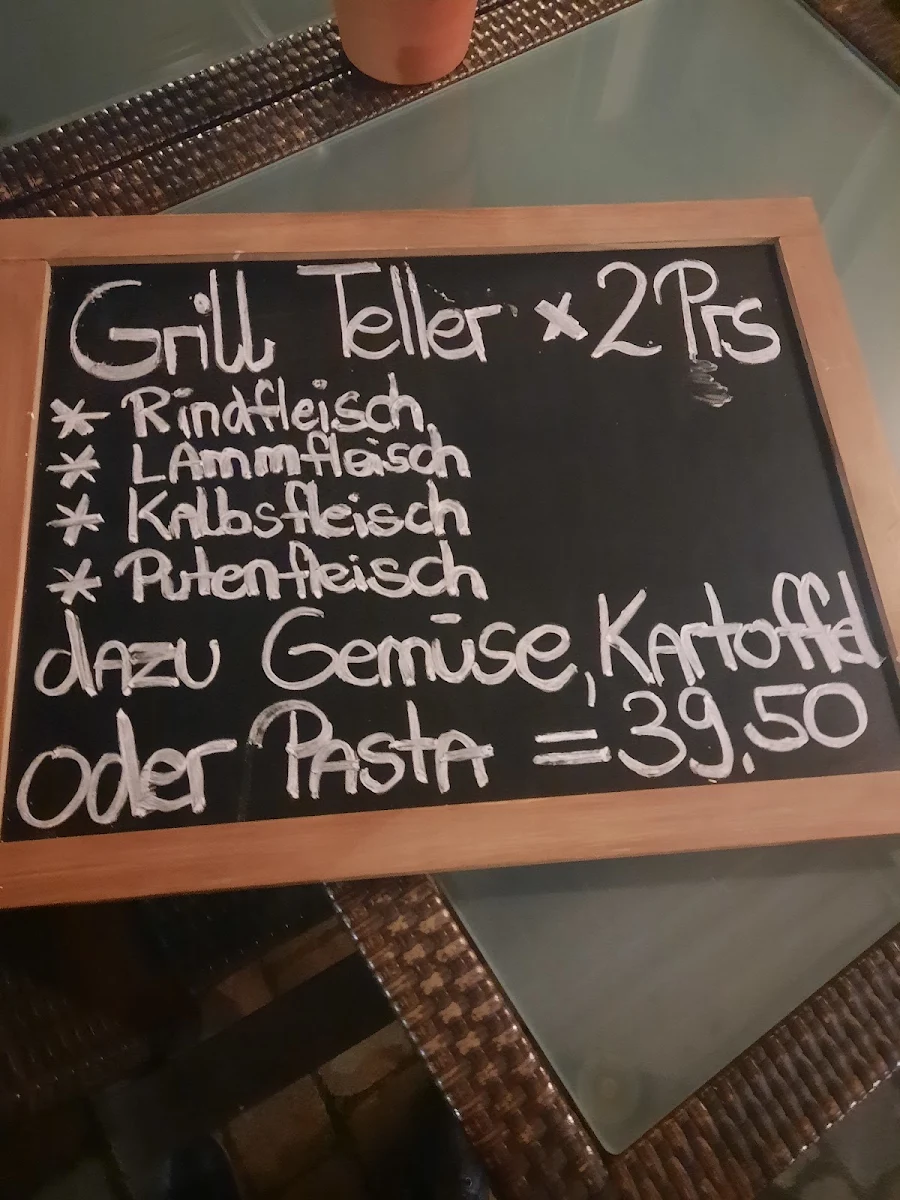 Grill Teller × 2 Prs
* Rindfleisch,
* LAmmfleisch
* KAlbsfleisch
* Putenfleisch
dAzu Gemüse, KArtoffel
oder PAstA = 39,50